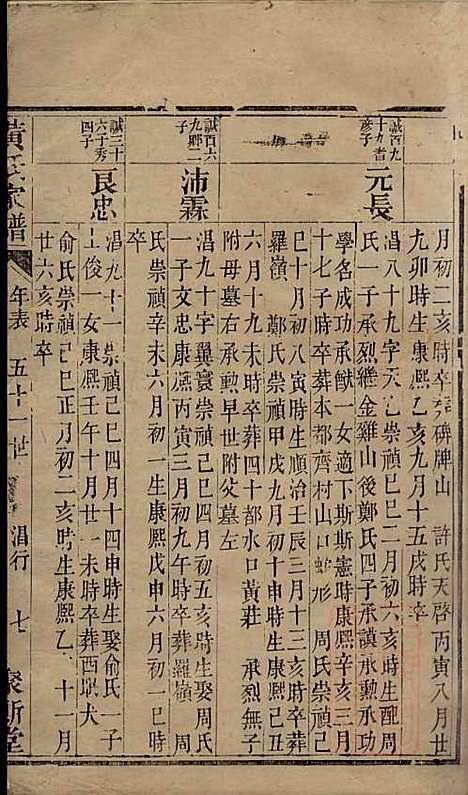 月初二亥時卒葬碑牌山　許氏天啓丙寅八月廿
九卯時生康熙乙亥九月十五戌時卒
誠百九
十九耆
彥子
元長
淐八十九字天乙崇禎己巳二月初六亥時生配周
氏一子承烈繼金雞山後鄭氏四子承謨承勳承功
學名成功承猷一女適下斯斯憲時康熙辛亥三月
十七子時卒葬本都齊村山口蛇形　周氏崇禎己
巳十月初八寅時生順治壬辰三月十三亥時卒葬
羅嶺　鄭氏崇禎甲戌九月初十申時生康熙己丑
六月十九未時卒葬四十都水口黃莊　承烈無子
附母墓右承勳早世附父墓左
誠百六
九卿二
子
沛霖
淐九十字翼寰崇禎己巳四月初五亥時生娶周氏
一子文忠康熙丙寅三月初九午時卒葬羅嶺　周
氏崇禎辛未六月初一生康熙戊申六月初一巳時
卒
誠三十
六于秀
四子
良忠
淐九十一崇禎己巳四月十四申時生娶俞氏一子
上俊一女康熙壬午十月廿一未時卒葬西塢犬
俞氏崇禎己巳正月初二亥時生康熙乙　十一月
廿六亥時卒
黃氏家譜
年表　五十一世　淐行　七　聚斯堂